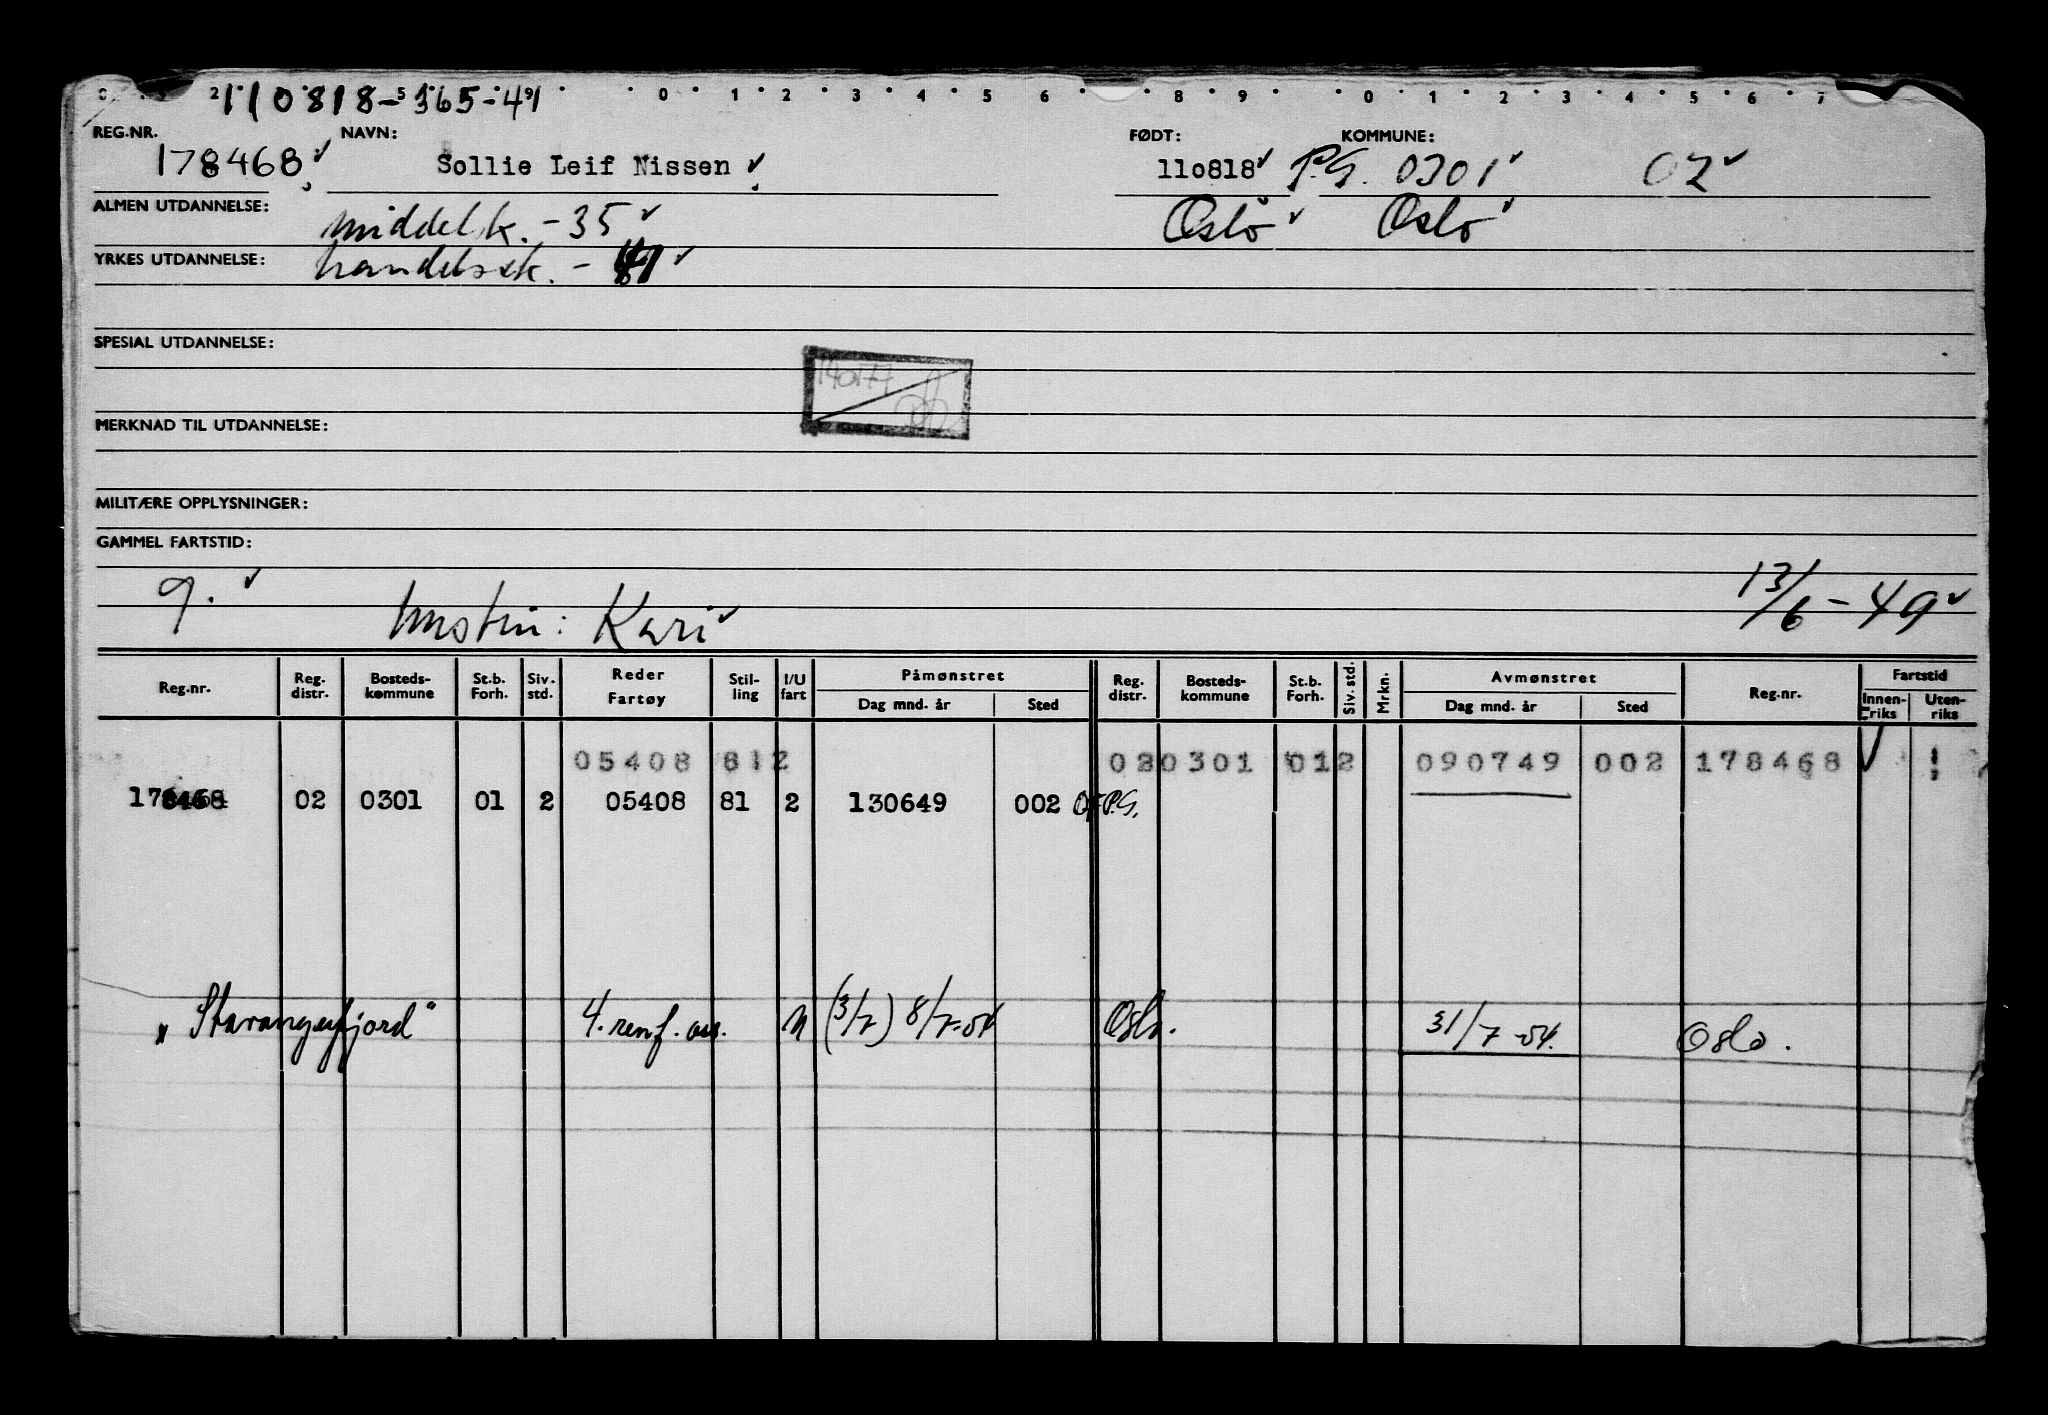 110818-36549
REG.NR. NAVN: FØDT: KOMMUNE:
178468 Sollie Leif Nissen 110818 P.G. 0301 02
ALMEN UTDANNELSE: middelsk. - 35 Oslo Oslo
YRKES UTDANNELSE: handelssk. - 41
SPESIAL UTDANNELSE:
140177
MERKNAD TIL UTDANNELSE:
MILITÆRE OPPLYSNINGER:
GAMMEL FARTSTID:
g. hustru: Kari 13/6-49
Reg.nr. Reg. distr. Bosteds-kommune St.b. Forh. Siv. std. Reder Fartøy Stil-ling I/U fart Påmønstret Dag mnd. år Sted Reg. distr. Bosteds-kommune St.b. Forh. Siv. std. Mrkn. Avmønstret Dag mnd. år Sted Reg.nr. Fartstid Innen-riks Uten-riks
05408 812 020301 012 090749 002 178468
178468 02 0301 01 2 05408 81 2 130649 002 P.G.
"Stavangerfjord" 4. renf. ass. (3/7) 8/7-54 Oslo. 31/7-54. Oslo.